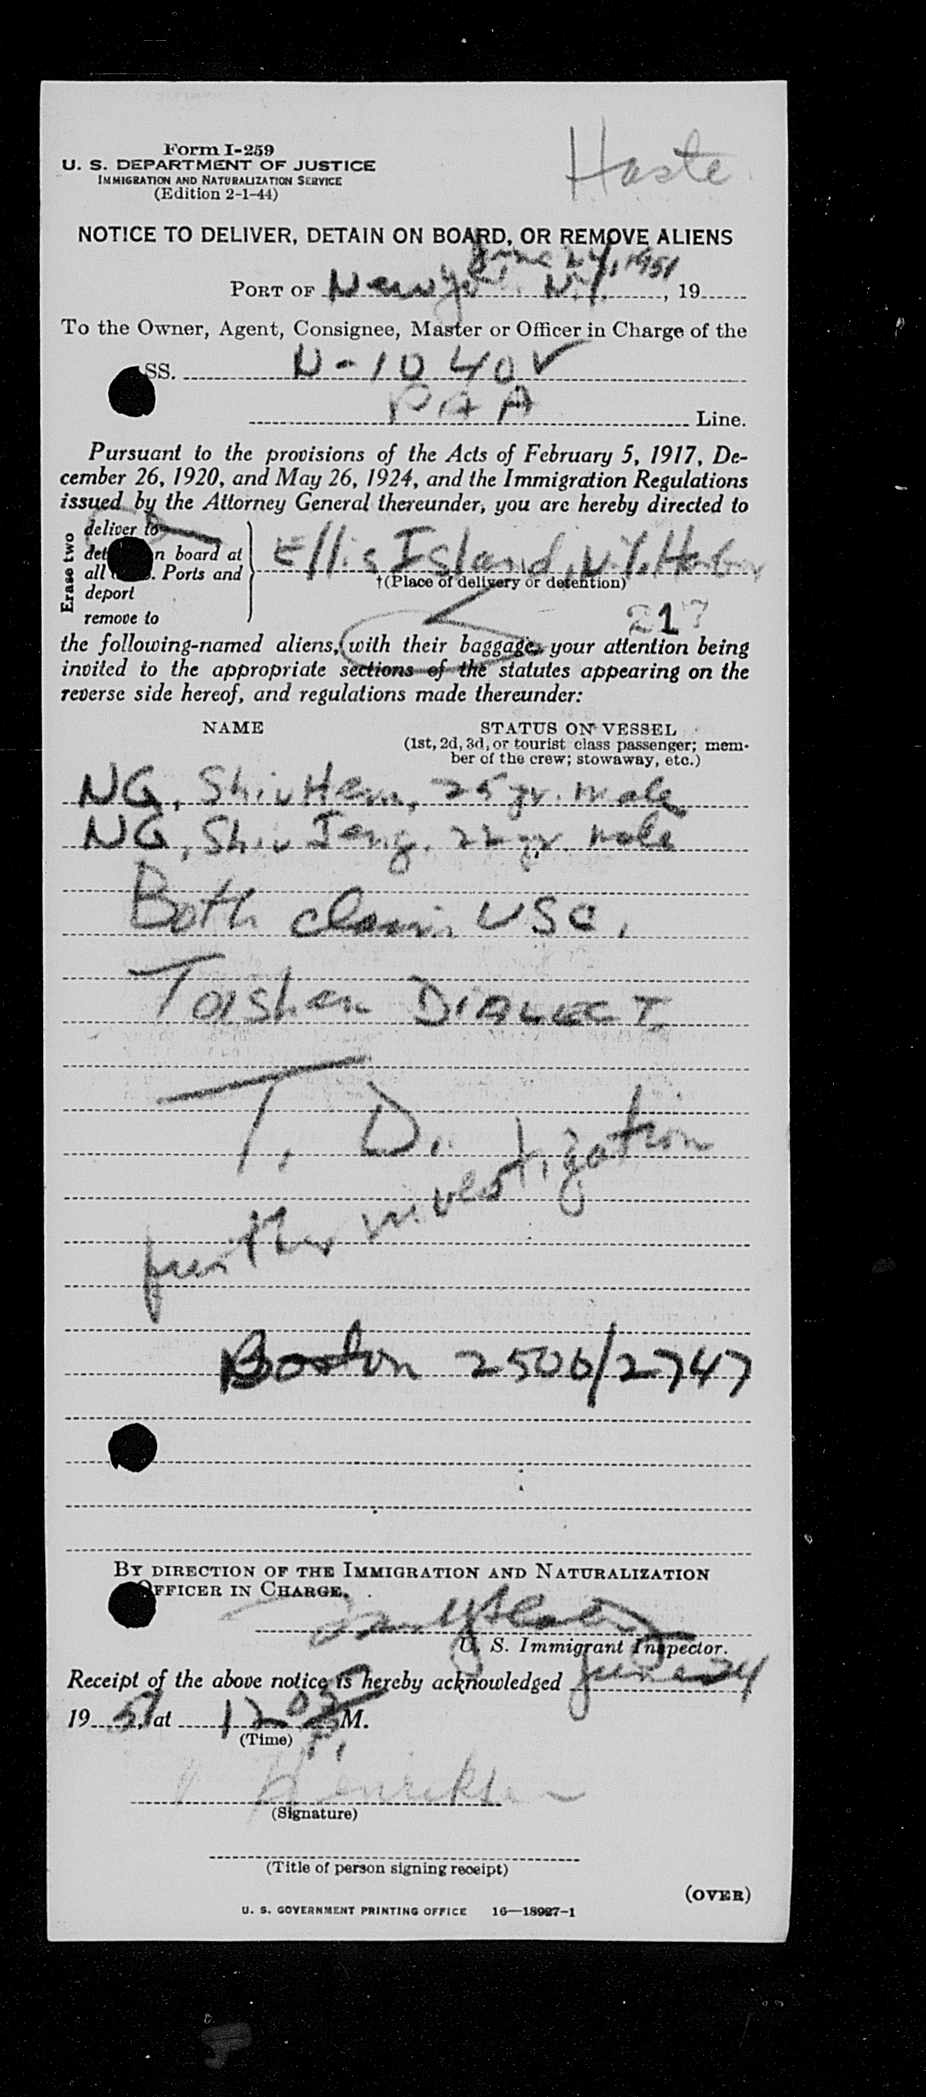 Form I-259
U. S. DEPARTMENT OF JUSTICE
IMMIGRATION AND NATURALIZATION SERVICE
(Edition 2-1-44)
Haste
NOTICE TO DELIVER, DETAIN ON BOARD, OR REMOVE ALIENS
June 24, 1951
PORT OF New York N.Y., 19
To the Owner, Agent, Consignee, Master or Officer in Charge of the
SS. N-1040V
PAA Line.
Pursuant to the provisions of the Acts of February 5, 1917, De-
cember 26, 1920, and May 26, 1924, and the Immigration Regulations
issued by the Attorney General thereunder, you are hereby directed to
Erase two
deliver to
n board at
all Ports and
deport
remove to
Ellis Island, N.Y. Harbor
†(Place of delivery or detention)
217
the following-named aliens, with their baggage, your attention being
invited to the appropriate sections of the statutes appearing on the
reverse side hereof, and regulations made thereunder:
NAME STATUS ON VESSEL
(1st, 2d, 3d, or tourist class passenger; mem-
ber of the crew; stowaway, etc.)
NG, Shiu Hem, 25 yr. male
NG, Shiu Jeng, 22 yr. male
Both claim USC.
Toishan DIALECT.
T. D.
further investigation
Boston 2506/2747
BY DIRECTION OF THE IMMIGRATION AND NATURALIZATION
OFFICER IN CHARGE.
U. S. Immigrant Inspector.
Receipt of the above notice is hereby acknowledged June 24
19 51, at 12 05 P. M.
(Time)
Henriksen
(Signature)
(Title of person signing receipt)
(OVER)
U. S. GOVERNMENT PRINTING OFFICE 16—18927-1